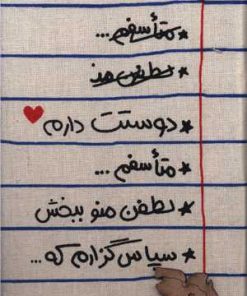 ★ متأسفم...
★ لطفن من
★ دوستت دارم
★ متأسفم...
★ لطفن منو ببخش
★ سپاس گزارم که...